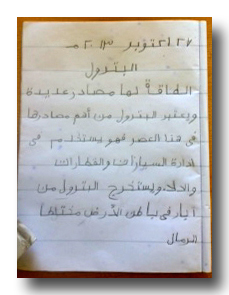 ٢٧ اكتوبر ٢٠١٣ م
البترول
الطاقة لها مصادر عديدة
ويعتبر البترول من أهم مصادرها
في هذا العصر فهو يستخدم في
إدارة السيارات والقطارات
ويستخرج البترول من
آبار في باطن الأرض مختلطا
الرمال